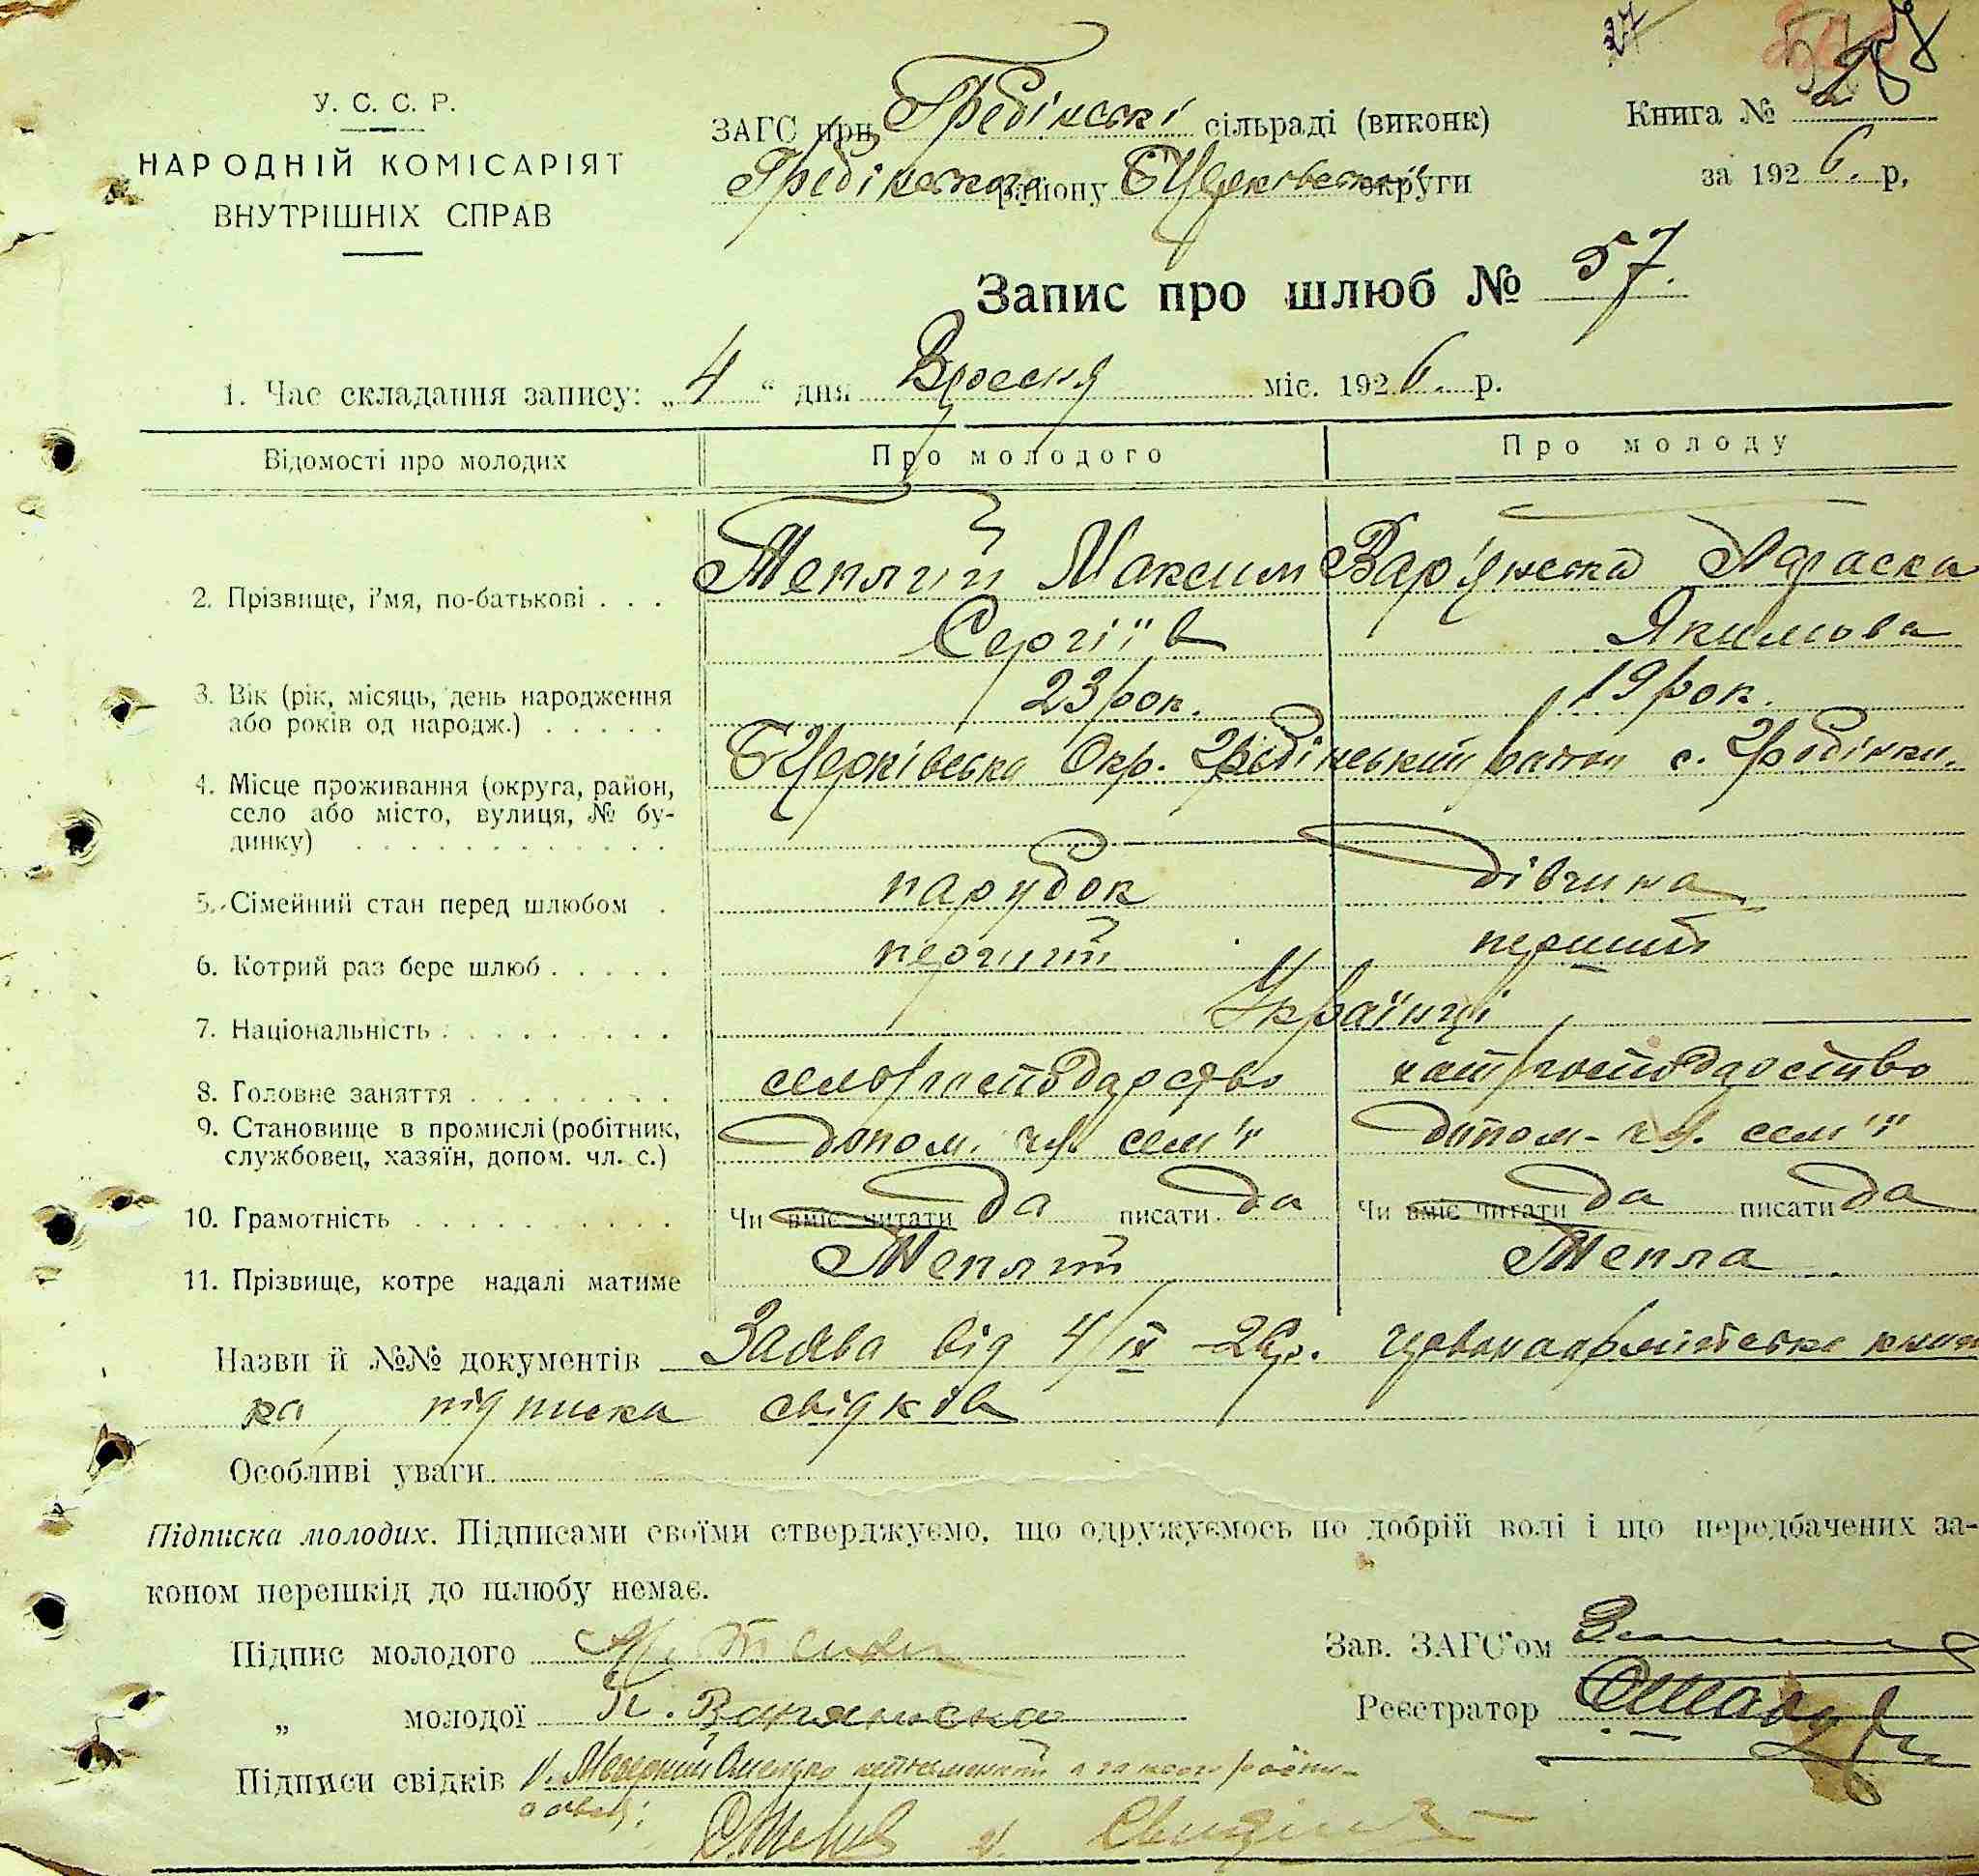 37
У. С. С. Р.
НАРОДНІЙ КОМІСАРІЯТ
ВНУТРІШНІХ СПРАВ
ЗАГС при Гребінські сільраді (виконк)
Гребінського району БЦерковської округи
Книга №
за 1926. р,
Запис про шлюб № 57.
1. Час складання запису: „4“ дня Вресня міс. 1926. р.
Відомості про молодих Про молодого Про молоду
2. Прізвище, і'мя, по-батькові . . . Теплий Максим Вар'янська
Сергіїв Якимова
3. Вік (рік, місяць, день народження 23 рок. 19 рок.
або років од народж.) . . . . .
4. Місце проживання (округа, район, БЦерківська Окр. Гребінський район с. Гребінки.
село або місто, вулиця, № бу-
динку) . . . . . . . . . . . .
5. Сімейний стан перед шлюбом . парубок дівчина
6. Котрий раз бере шлюб . . . . . перший перший
7. Національність . . . . . . . . . Українці
8. Головне заняття . . . . . . . . господарство господарство
9. Становище в промислі (робітник, допом. чл. сем'ї допом. чл. сем'ї
службовец, хазяїн, допом. чл. с.)
10. Грамотність . . . . . . . . . . Чи вміє читати да писати да Чи вміє читати да писати да
11. Прізвище, котре надалі матиме Теплий Тепла
Назви й №№ документів Заява від 4/ІХ-26р.
ка, підписка свідків
Особливі уваги
Підписка молодих. Підписами своїми стверджуємо, що одружуємось по добрій волі і що передбачених за-
коном перешкід до шлюбу немає.
Підпис молодого
Зав. ЗАГС'ом
„ молодої
Реєстратор
Підписи свідків